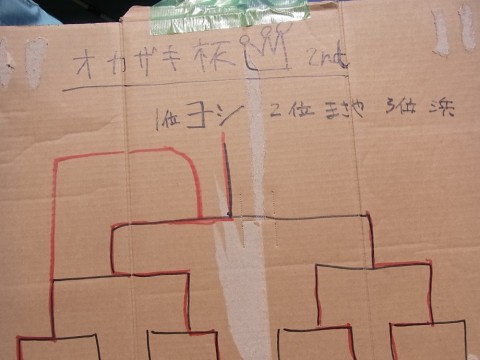 オカザキ杯 2nd
1位ヨシ 2位まさ也 3位浜